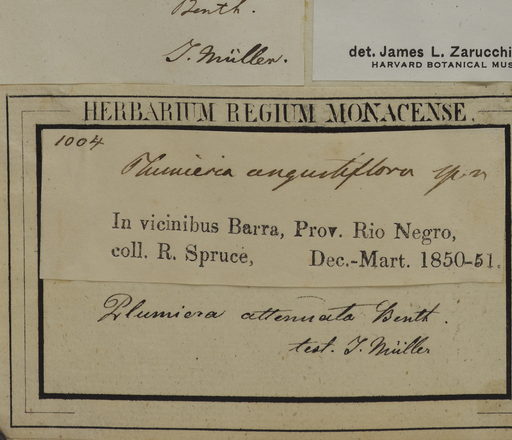 Benth.
J. Müller.
det. James L. Zarucchi
HARVARD BOTANICAL MUS
HERBARIUM REGIUM MONACENSE.
1004
Plumieria angustiflora sp. n
In vicinibus Barra, Prov. Rio Negro,
coll. R. Spruce, Dec.-Mart. 1850-51.
Plumiera attenuata Benth.
test. J. Müller